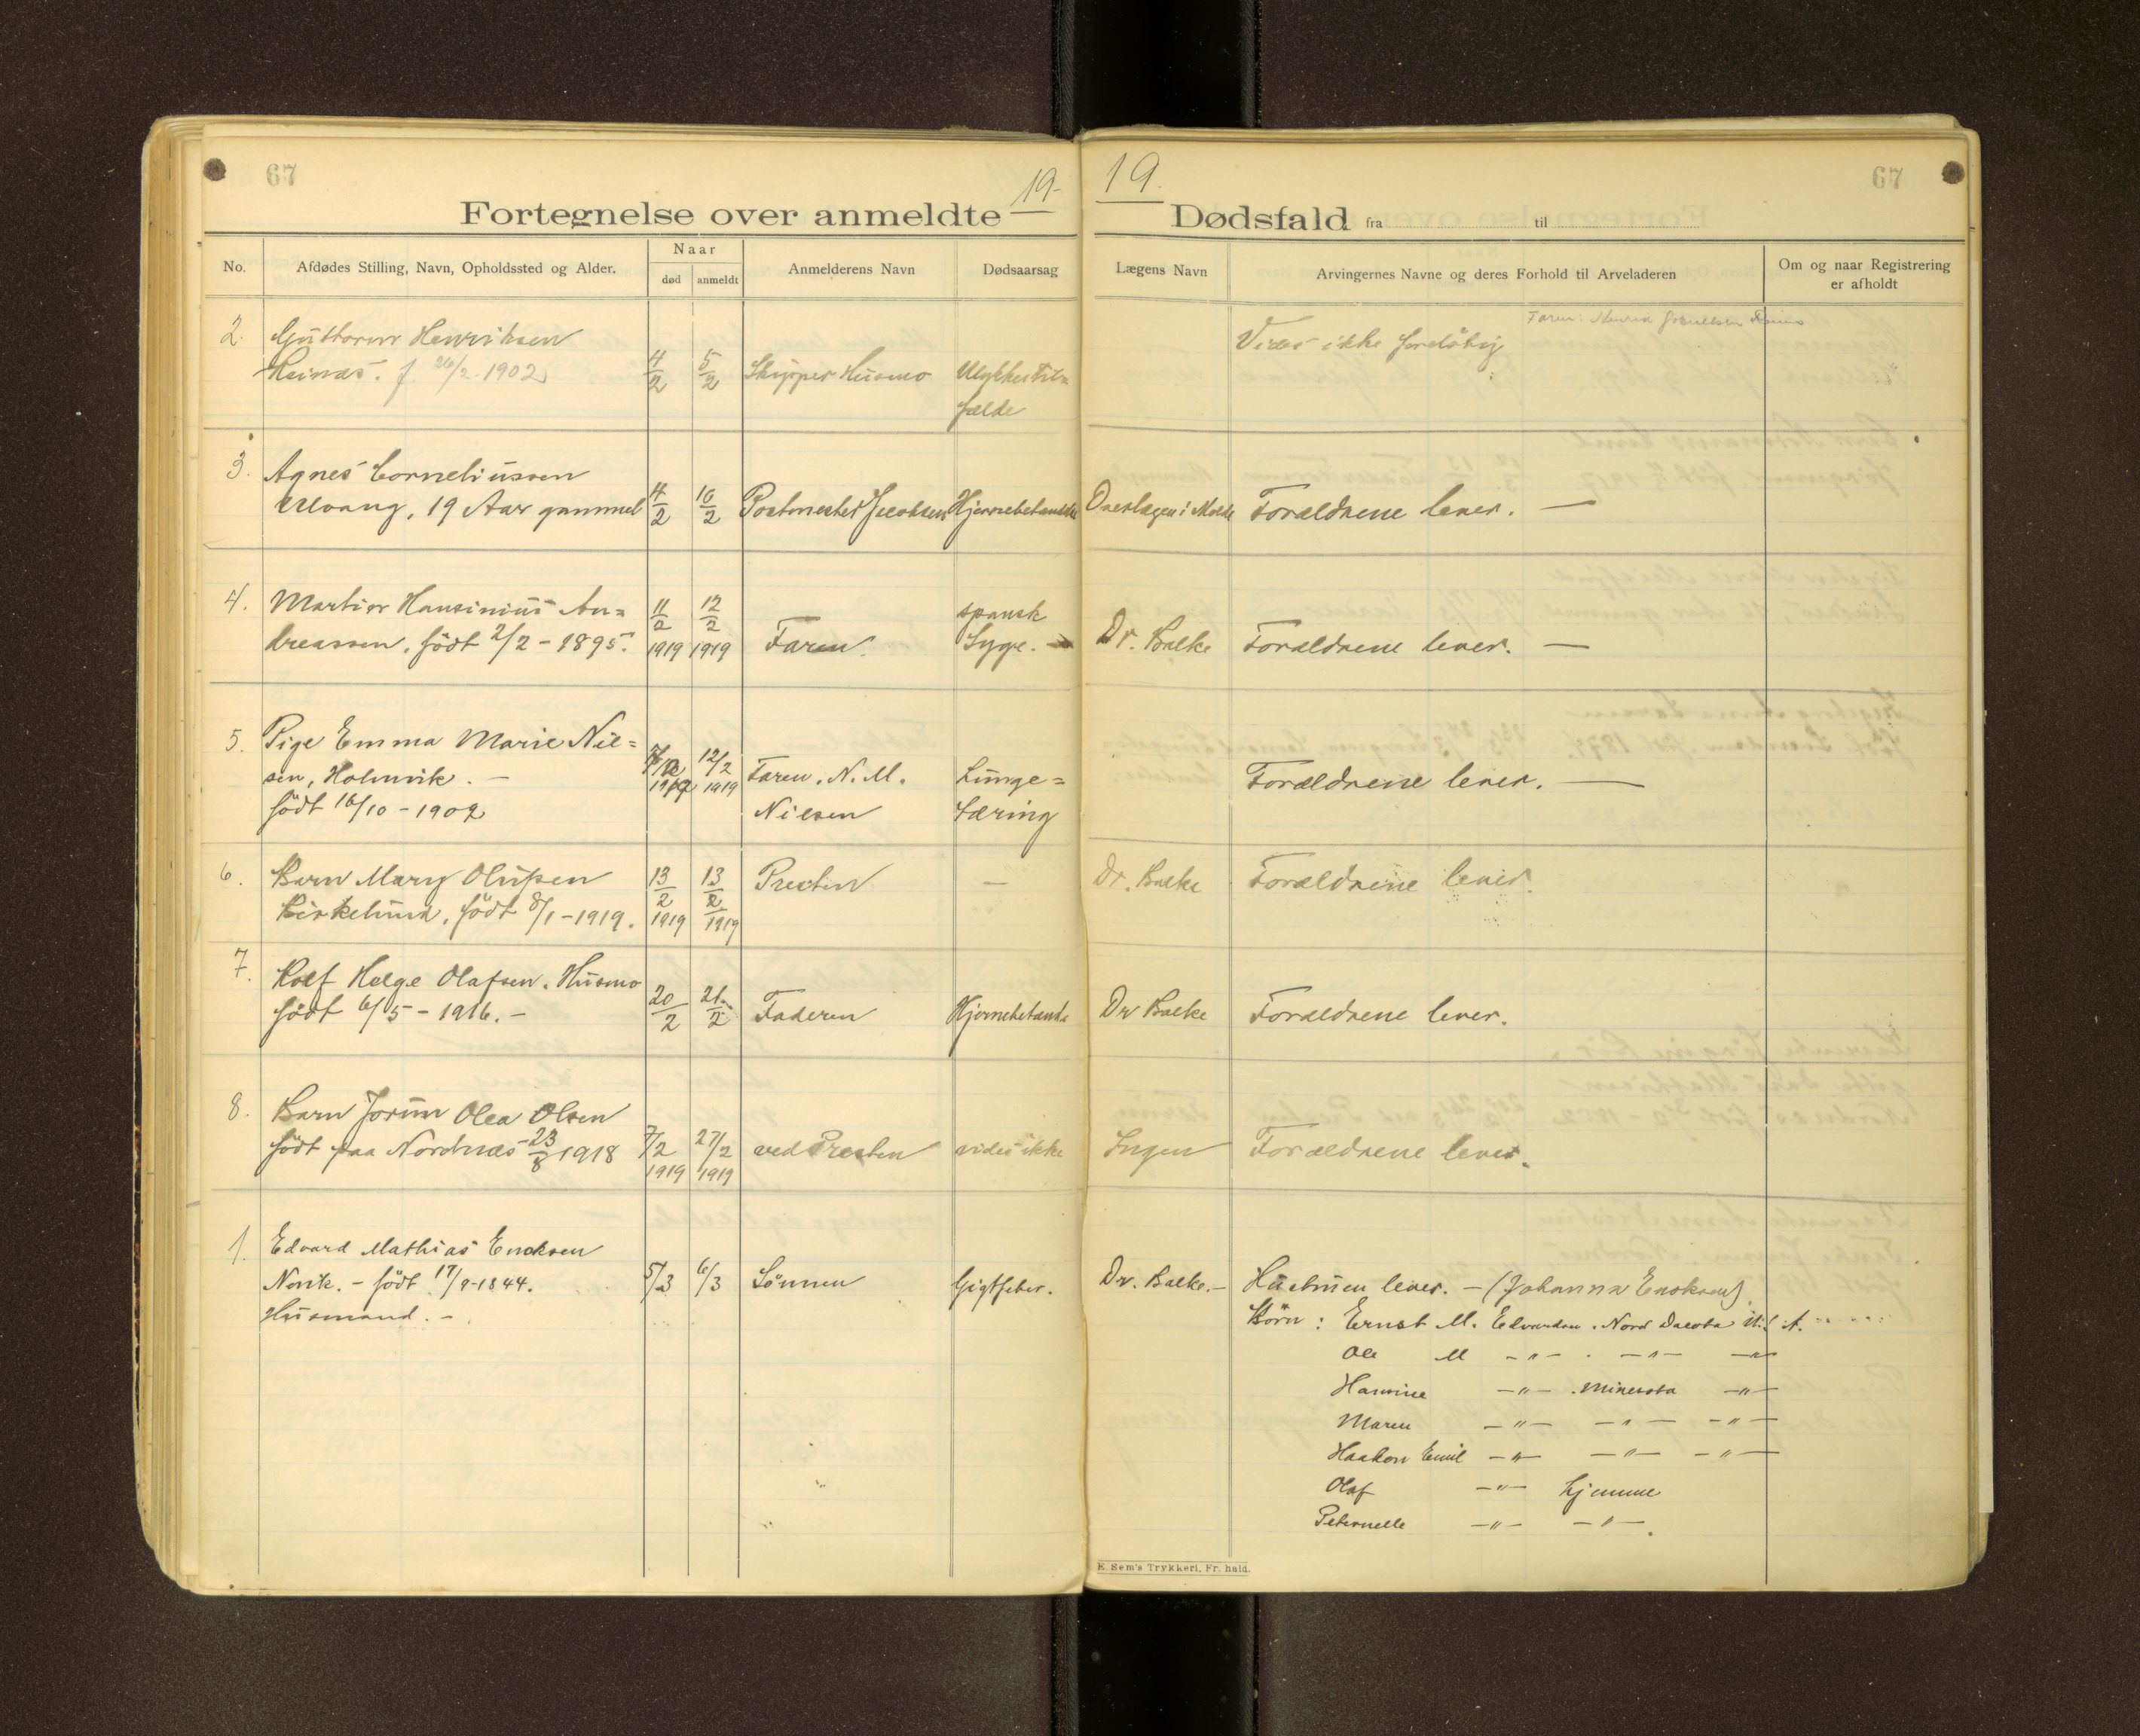 67
19-
19.
67
Fortegnelse over anmeldte
Dødsfald fra til
No.
Afdødes Stilling, Navn, Opholdssted og Alder.
Naar
død
anmeldt
Anmelderens Navn
Dødsaarsag
Lægens Navn
Arvingernes Navne og deres Forhold til Arveladeren
Om og naar Registrering
er afholdt
2. Guttorm Henriksen
f 26/2-1902
4/2
5/2
Skipper Husmo
Ulykkestil=
fælde
Faren:
Vides ikke foreløbig
3. Agnes Corneliussen
Ulvang, 19 Aar gammel
4/2
10/2
Postmester Jacobsen
Overlægen i
Forældrene lever. —
4. Martin Hansinius An=
dreassen, födt 2/2 - 1895.
11/2
1919
12/2
1919
Faren.
spansk
Syge. -
Dr. Balke
Forældrene lever. —
5. Pige Emma Marie Niel=
sen, Holmvik. —
födt 16/10 - 1902
12/2
1919
Faren. N. M.
Nielsen
Lunge=
tæring
Forældrene lever. —
6. Barn Mary Olufsen
Birkelund, födt 8/1-1919.
13/2
1919
13/2
1919
Presten
—
Dr. Balke
Forældrene lever.
7. Rolf Helge Olafsen. Husmo
födt 6/5 - 1916. -
20/2
21/2
Faderen
Hjernebetænd.
Dr Balke
Forældrene lever.
8. Barn Jorun Olea Olsen
födt paa Nordnæs 23/8 1918
7/2
1919
27/2
1919
ved Presten
vides ikke
Ingen
Forældrene lever.
1. Edvard Mathias Enoksen
födt 17/9-1844.
Husmand. -
5/3
6/3
Sönnen
Gigtfeber.
Dr. Balke. -
Hustruen lever. - (Johanna Enoksen).
Börn: Ernst M. Edvardsen. Nord Dacota U.S.A.
Ole M -"- . -"- -"-
Hansine -"- . Minesota -"-
Maren -"- -"- -"-
Haakon Emil -"- -"- -"-
Olaf -"- hjemme
Peternelle -"- -"- .
E. Sem's Trykkeri, Fr. hald.